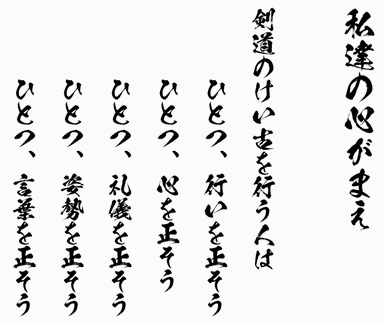 私達の心がまえ
剣道のけい古を行う人は
ひとつ、行いを正そう
ひとつ、心を正そう
ひとつ、礼儀を正そう
ひとつ、姿勢を正そう
ひとつ、言葉を正そう